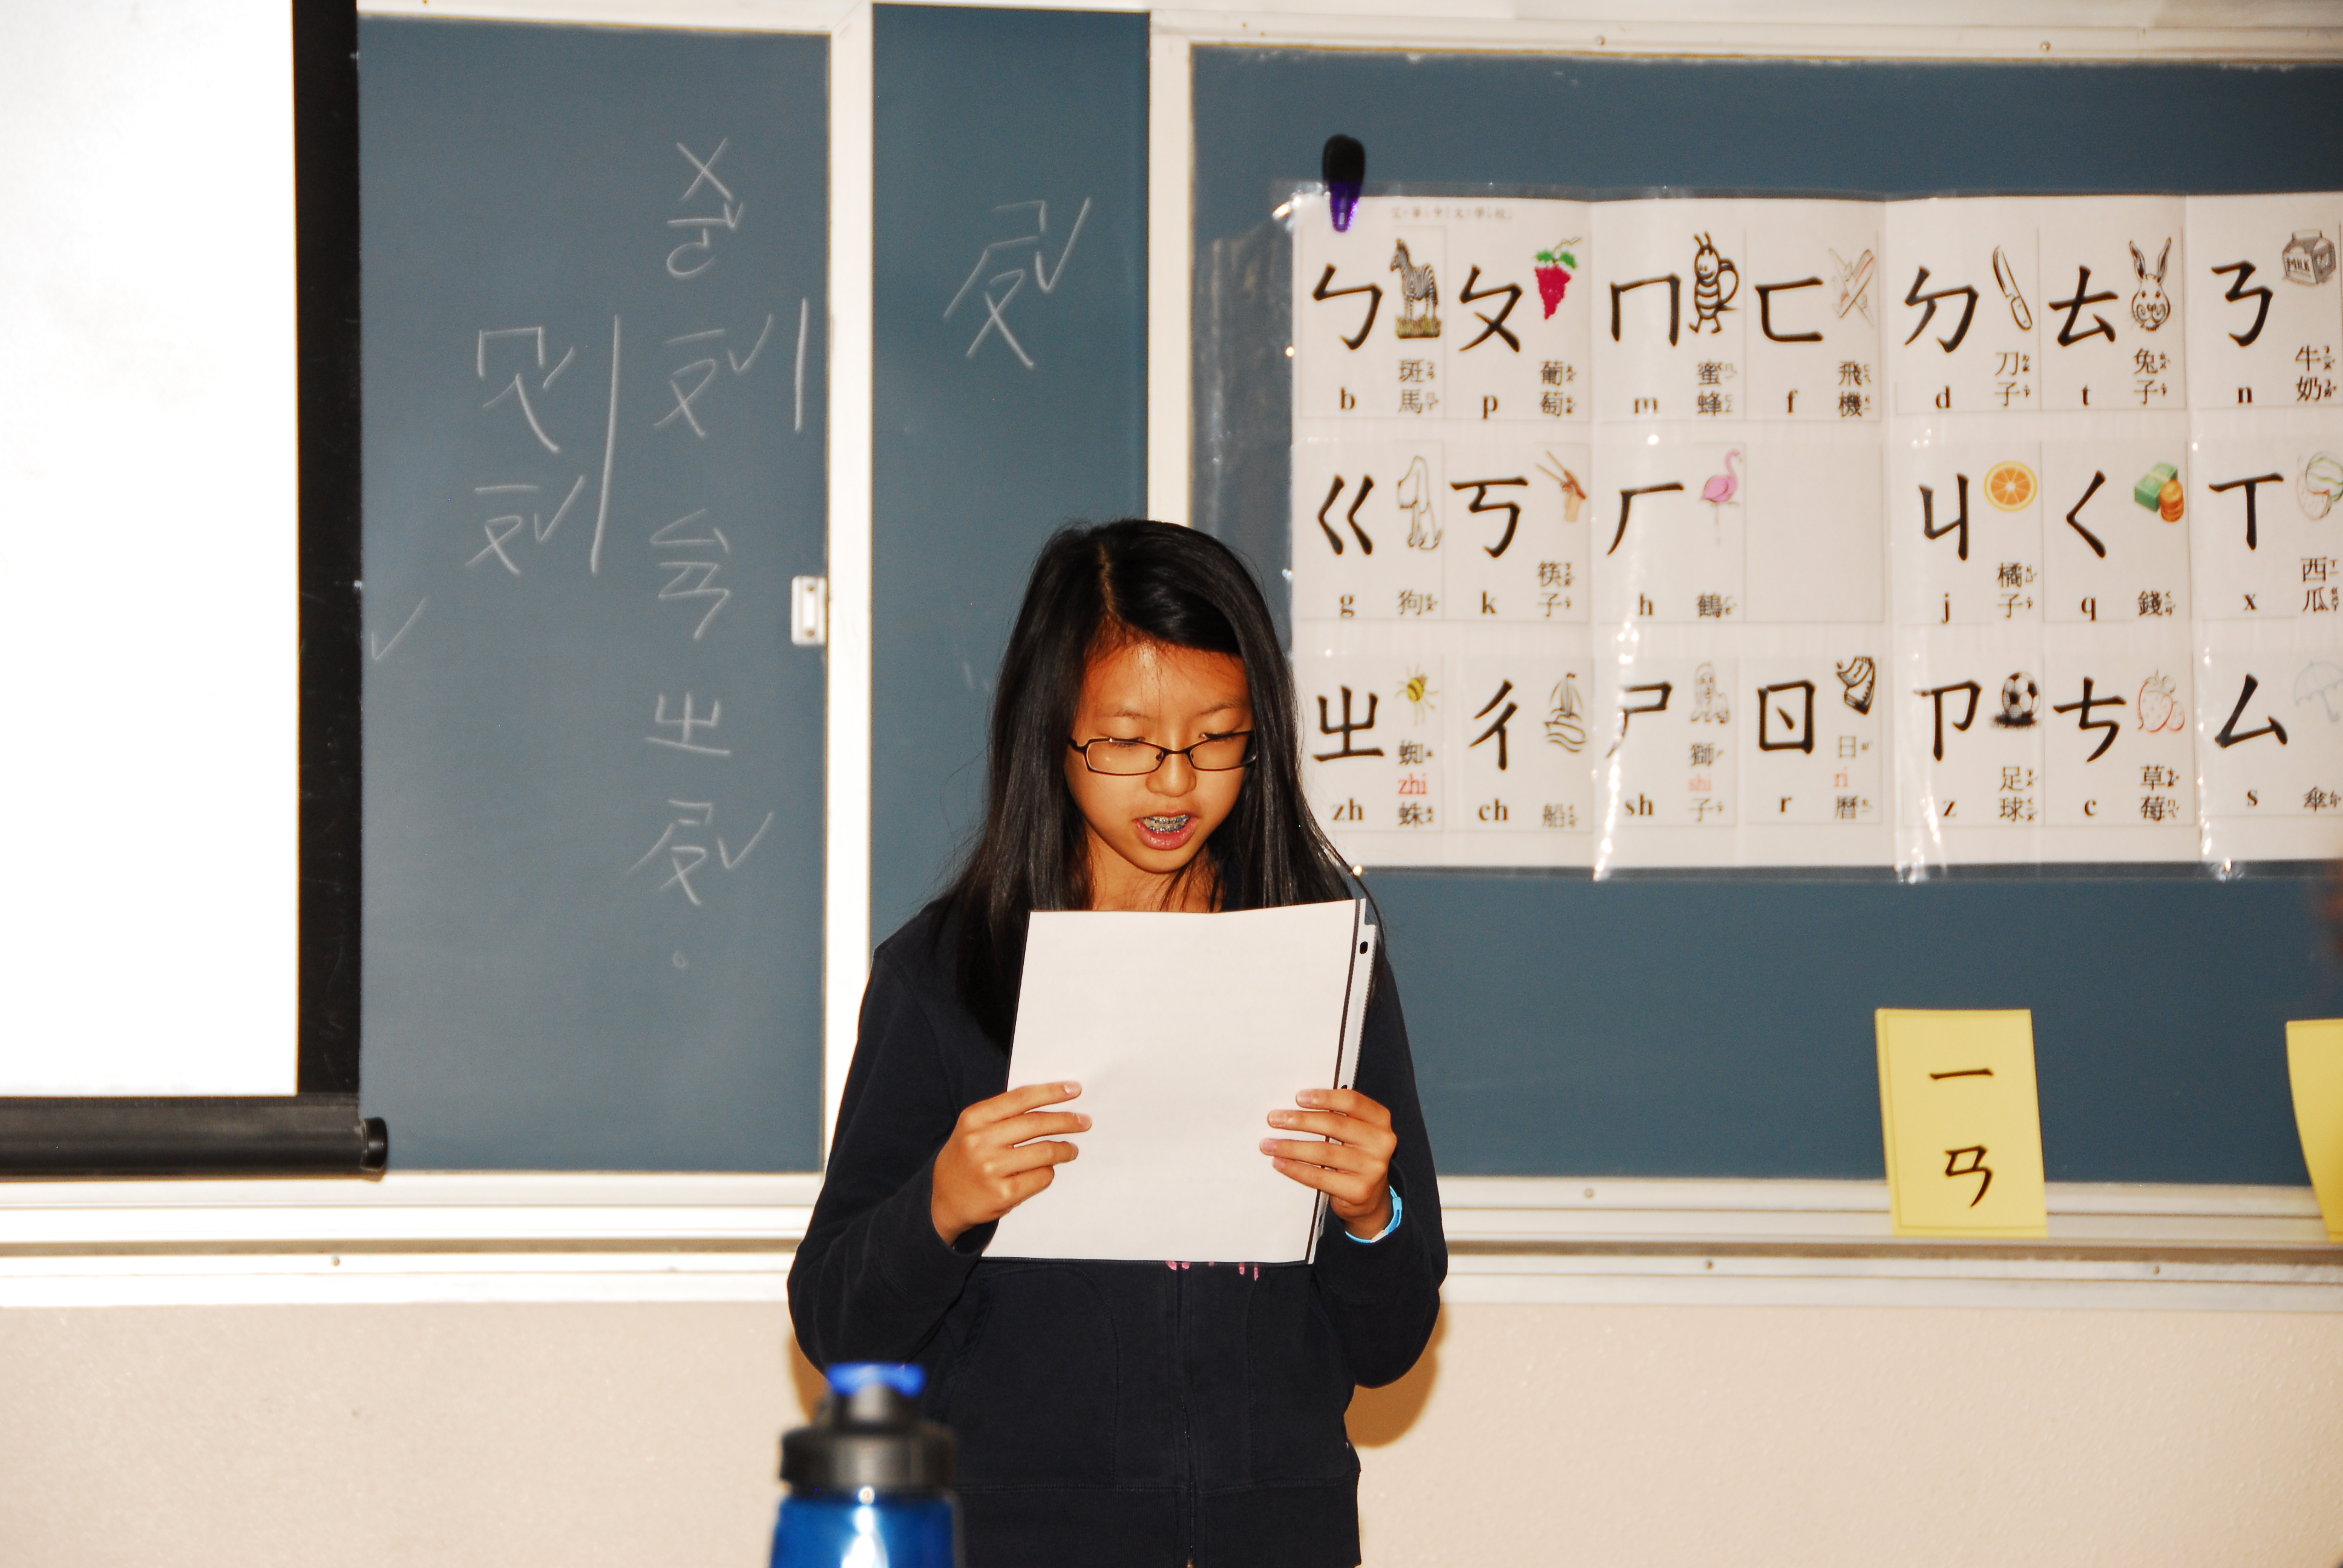 ㄨㄛˇ
ㄧㄡˇ
ㄙㄢ
ㄓ
ㄕㄡˇ
。
ㄧㄡˇ
ㄕㄡˇ
ㄅ ㄆ ㄇ ㄈ ㄉ ㄊ ㄋ
b 斑馬 p 葡萄 m 蜜蜂 f 飛機 d 刀子 t 兔子 n 牛奶
MILK
ㄍ ㄎ ㄏ ㄐ ㄑ ㄒ
g 狗 k 筷子 h 鶴 j 橘子 q 錢 x 西瓜
ㄓ ㄔ ㄕ ㄖ ㄗ ㄘ ㄙ
zh 蜘蛛 zhi ch 船 sh 獅子 shi r 日曆 ri z 足球 c 草莓 s 傘
ㄧ
ㄢ